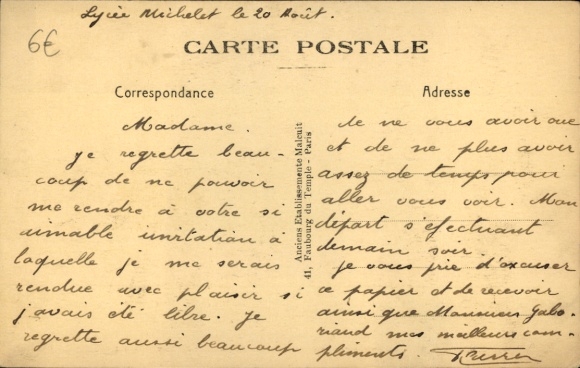 Lycée Michelet le 20 Août.
6€
CARTE POSTALE
Correspondance
Adresse
Madame.
Je regrette beau-
coup de ne pouvoir
me rendre à votre si
aimable invitation à
laquelle je me serais
rendue avec plaisir si
j'avais été libre. Je
regrette aussi beaucoup
Anciens Etablissements Malcuit
41, Faubourg du Temple - Paris
de ne vous avoir vue
et de ne plus avoir
assez de temps pour
aller vous voir. Mon
départ s'efectuant
demain soir.
Je vous prie d'excuser
ce papier et de recevoir
ainsi que Monsieur Gabo-
riaud mes meilleurs com-
pliments.